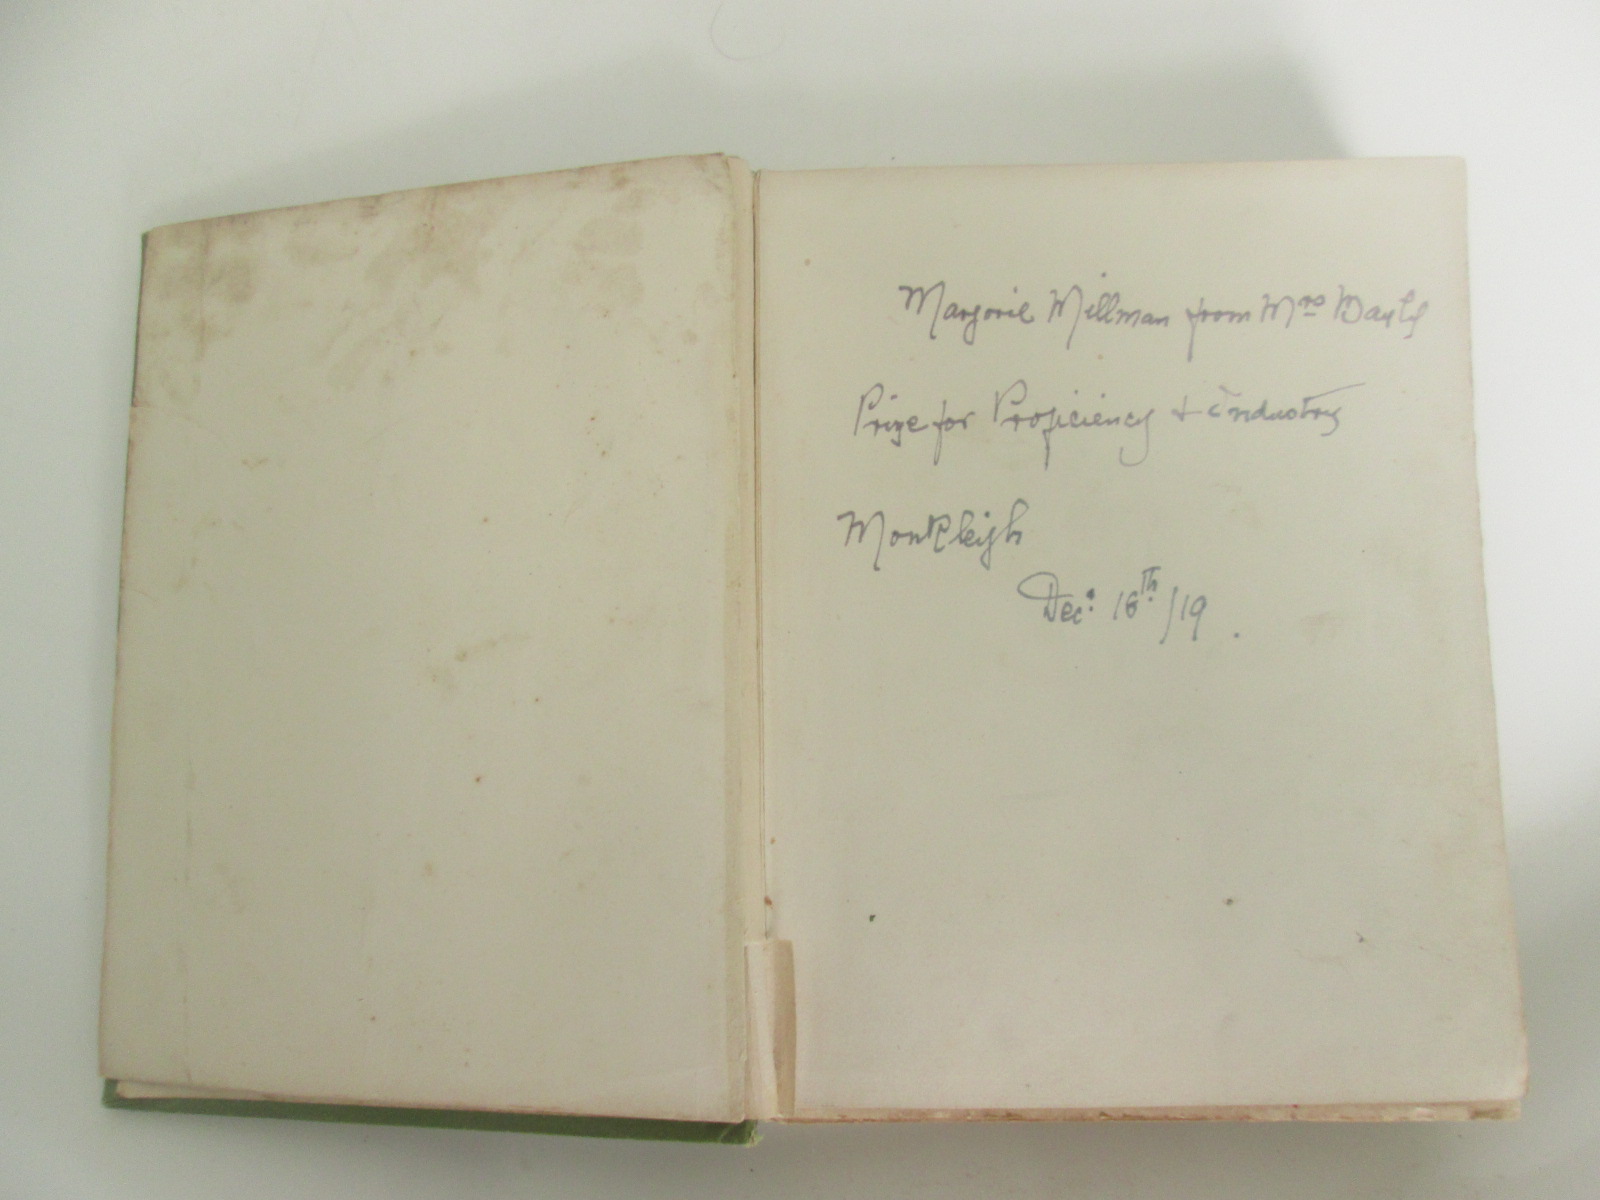 Marjorie Millman from Mrs Bayly
Prize for Proficiency & Industry
Monkleigh
Dec: 16th /19.